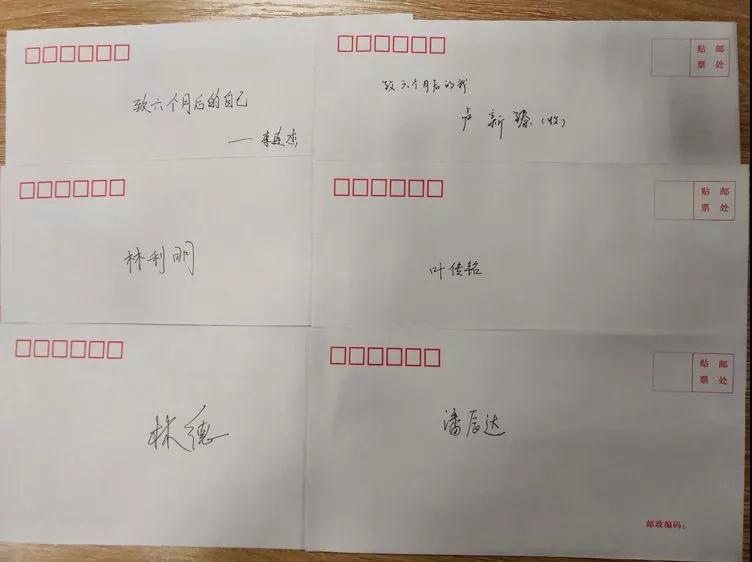 致六个月后的自己
——李连杰
贴 邮
票 处
致六个月后的我
卢新臻(收)
林利明
贴 邮
票 处
叶传韬
林德
贴 邮
票 处
潘辰达
邮政编码: